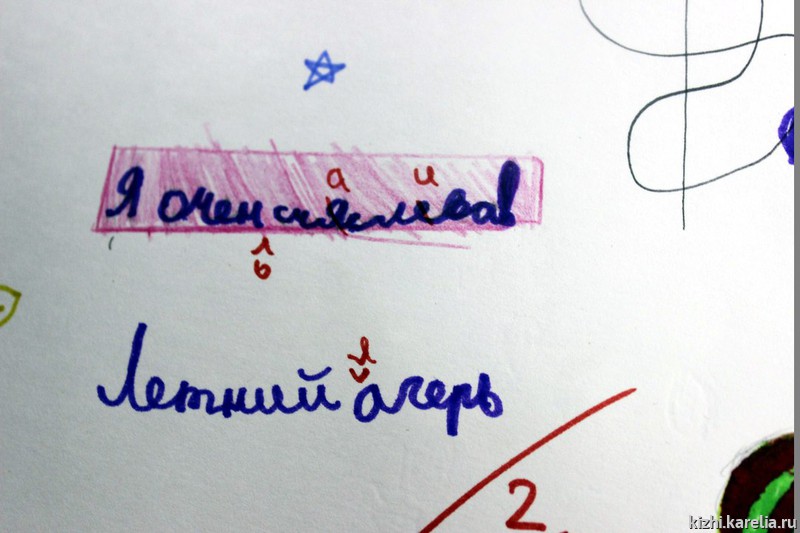 а и
Я очен счяслева!
ь
л
Летний агерь
2
kizhi.karelia.ru